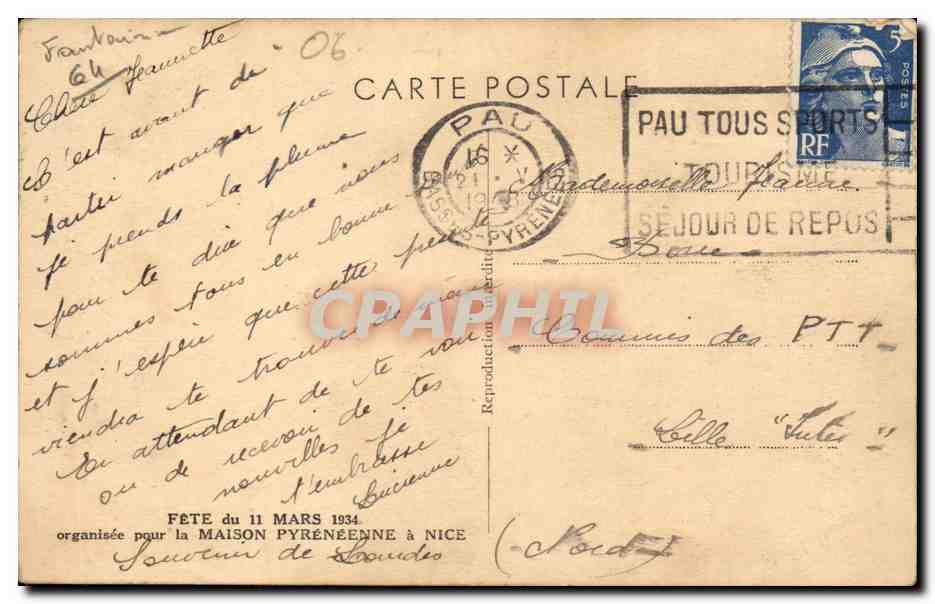 06
64
Chère Jeannette
C'est avant de
partir manger que
je prends la plume
pour te dire que nous
sommes tous en bonne
et j'espère que cette
viendra te trouver de même
En attendant de te voir
ou de recevoir de tes
nouvelles je
t'embrasse
Lucienne
FÊTE du 11 MARS 1934
organisée pour la MAISON PYRÉNÉENNE à NICE
Souvenir de Lourdes
CARTE POSTALE
PAU
16 *
21 V
19
BASSES-PYRÉNÉES
PAU TOUS SPORTS
TOURISME
SÉJOUR DE REPOS
5F
POSTES
RF
Reproduction interdite
CPAPHIL
Mademoiselle Jeanne
Commis des PTT
Lille "Inter"
(Nord)